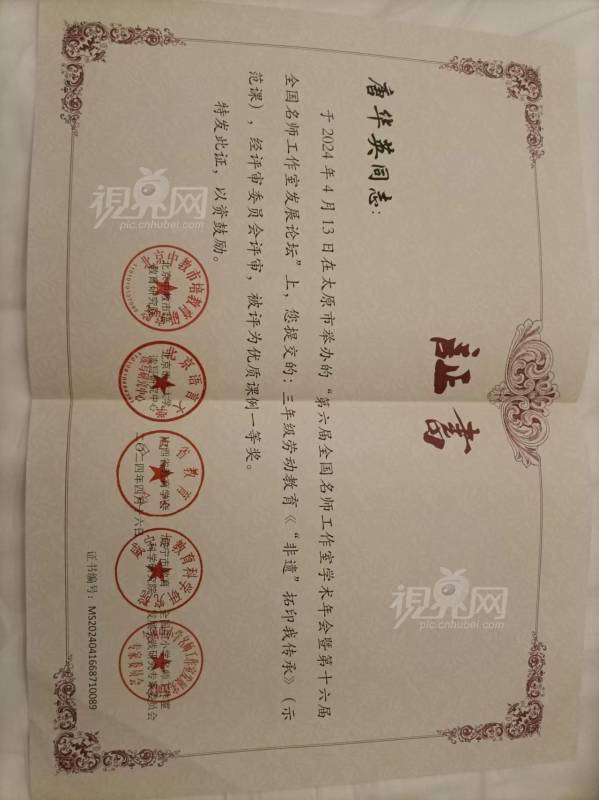 証書
唐华英同志：
于2024年4月13日在太原市举办的“第六届全国名师工作室学术年会暨第十六届
全国名师工作室发展论坛”上，您提交的：三年级劳动教育《“非遗”拓印我传承》（示
范课），经评审委员会评审，被评为优质课例一等奖。
特发此证，以资鼓励。
二〇二四年四月十六日
证书编号：MS2024041668710089
視界网
pic.cnhubei.com
視界网
pic.cnhubei.com